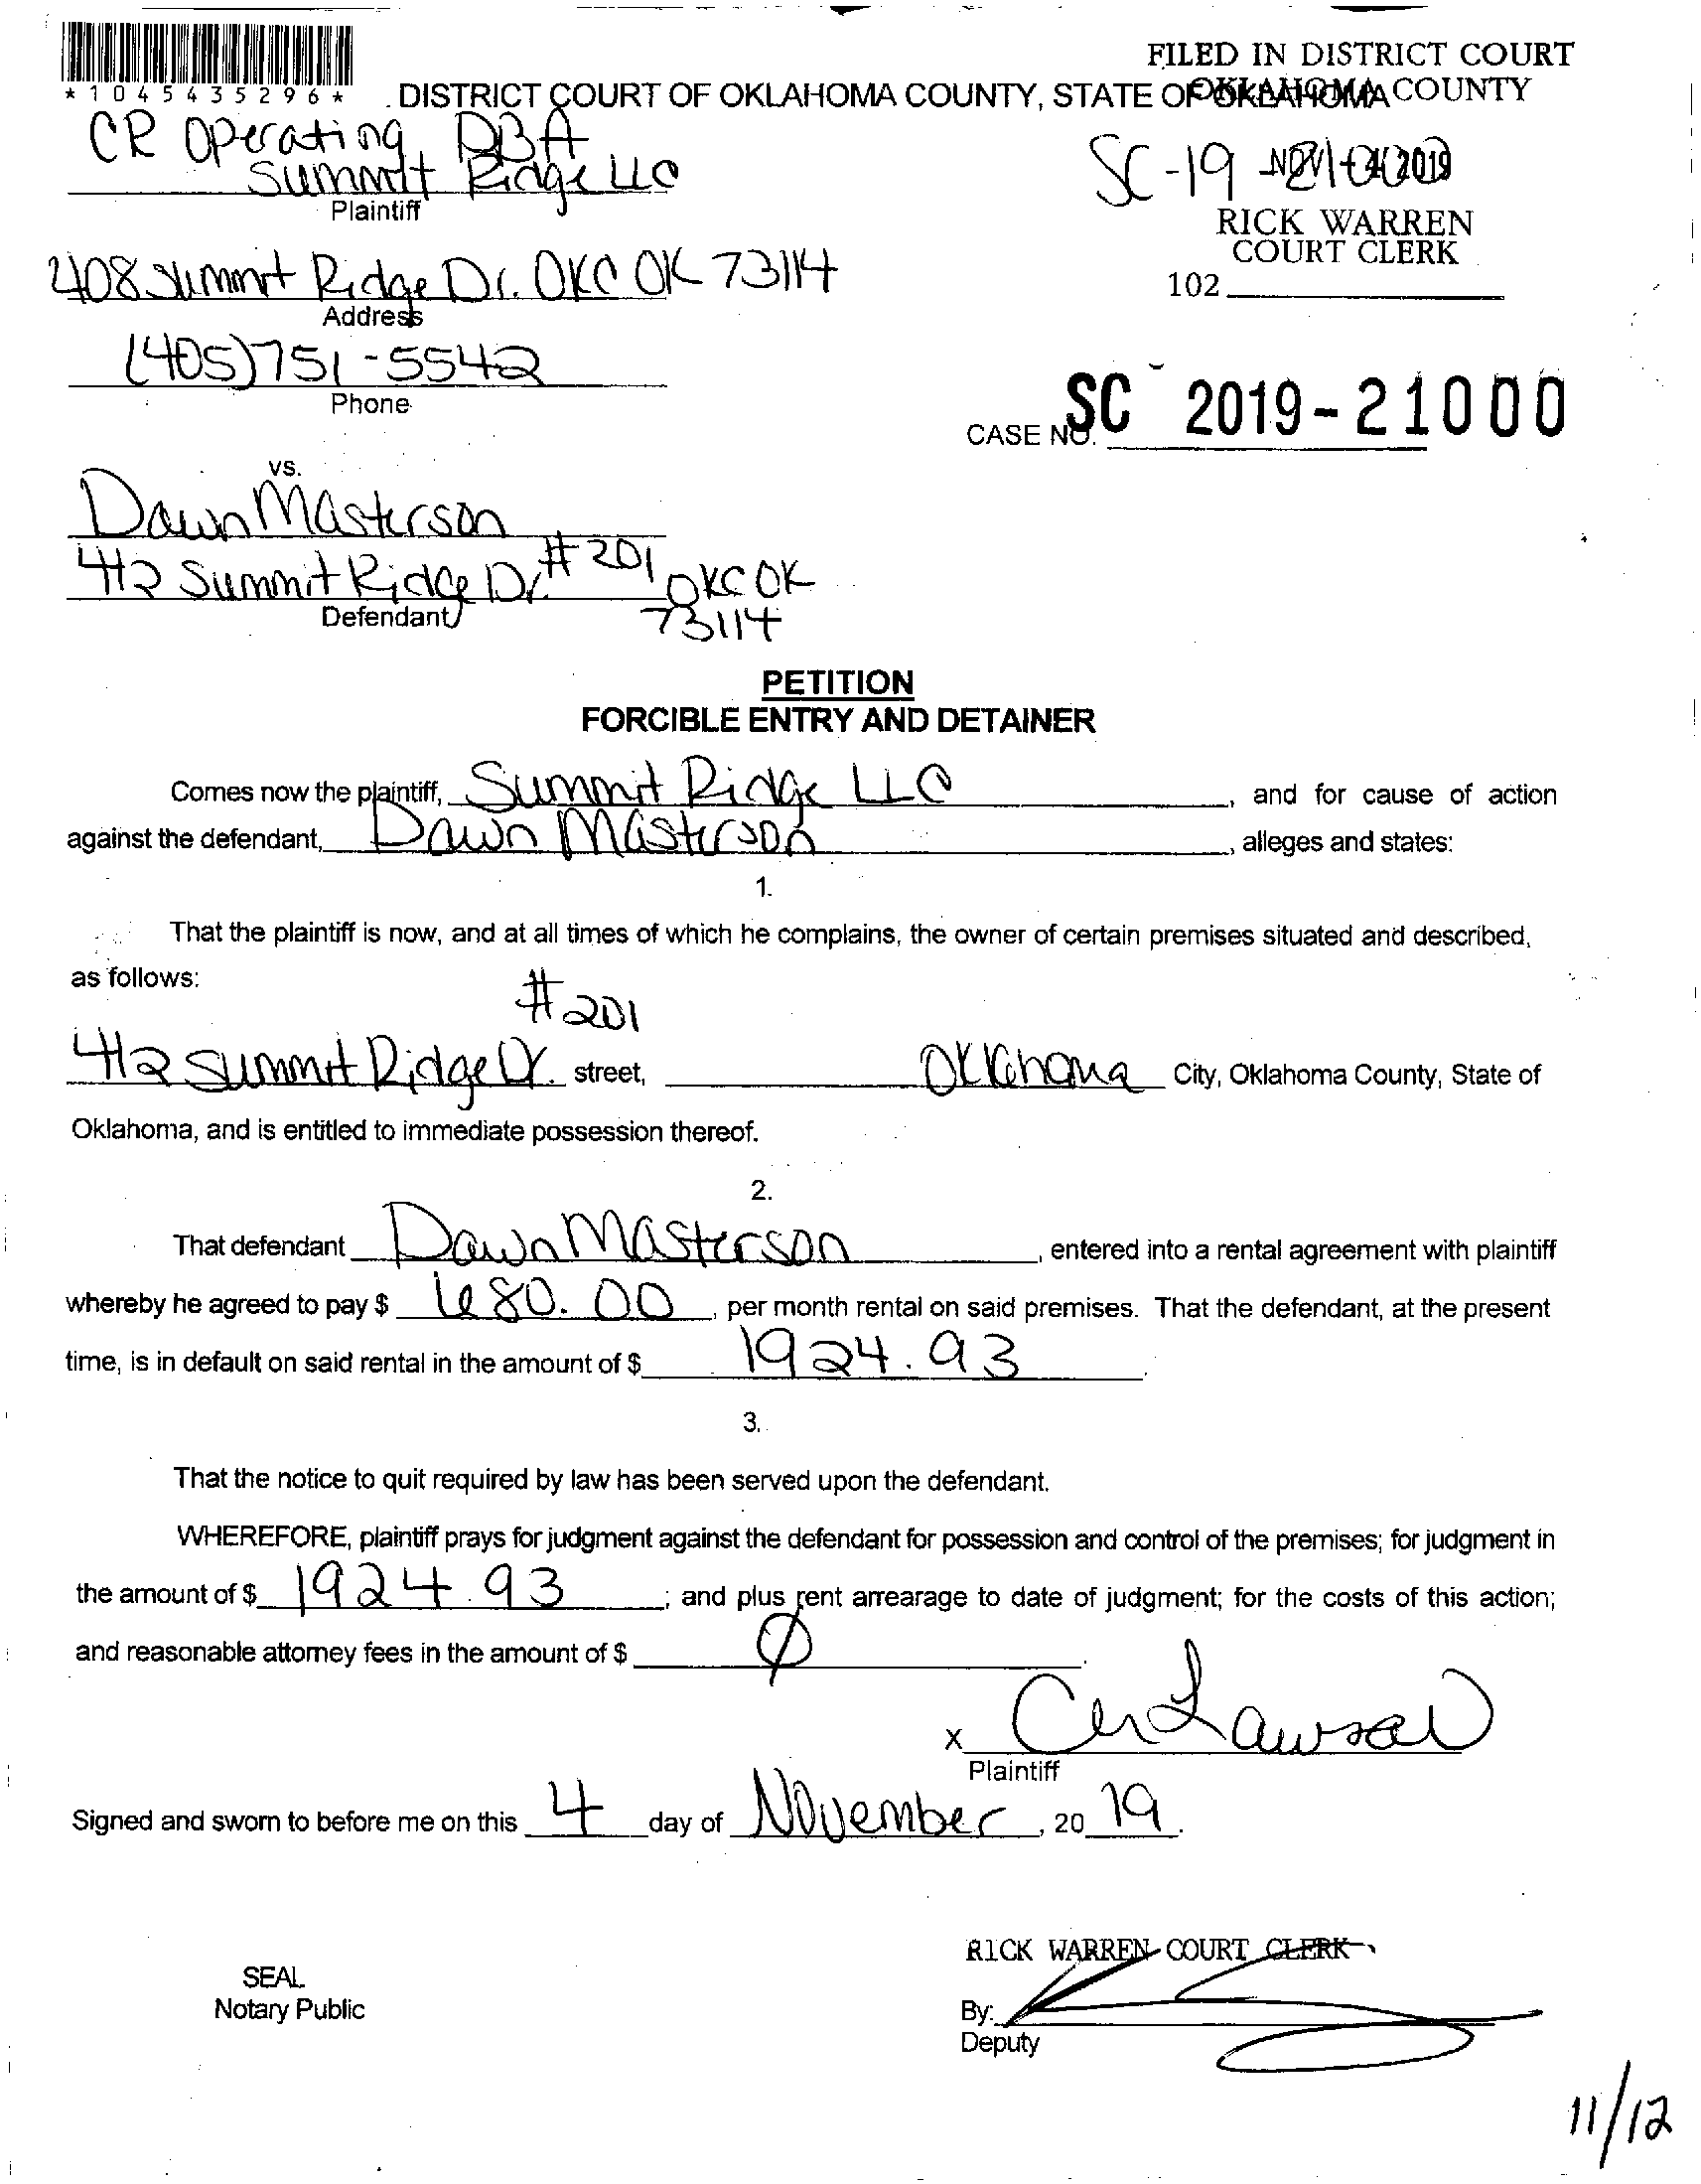 FILED IN DISTRICT COURT
OKLAHOMA COUNTY
*1045435296*
DISTRICT COURT OF OKLAHOMA COUNTY, STATE OF OKLAHOMA
CR Operating DBA
Summit Ridge LLC
Plaintiff
SC-19-21000
NOV - 4 2019
RICK WARREN
COURT CLERK
102
408 Summit Ridge Dr. OKC OK 73114
Address
(405)751-5542
Phone
CASE NO. SC 2019-21000
vs.
Dawn Masterson
412 Summit Ridge Dr. #201 OKC OK
73114
Defendant
PETITION
FORCIBLE ENTRY AND DETAINER
Comes now the plaintiff, Summit Ridge LLC, and for cause of action
against the defendant, Dawn Masterson, alleges and states:
1.
That the plaintiff is now, and at all times of which he complains, the owner of certain premises situated and described,
as follows:
#201
412 Summit Ridge Dr. street, Oklahoma City, Oklahoma County, State of
Oklahoma, and is entitled to immediate possession thereof.
2.
That defendant Dawn Masterson, entered into a rental agreement with plaintiff
whereby he agreed to pay $ 680.00, per month rental on said premises. That the defendant, at the present
time, is in default on said rental in the amount of $ 1924.93.
3.
That the notice to quit required by law has been served upon the defendant.
WHEREFORE, plaintiff prays for judgment against the defendant for possession and control of the premises; for judgment in
the amount of $ 1924.93; and plus rent arrearage to date of judgment; for the costs of this action;
and reasonable attorney fees in the amount of $ Ø.
X
Plaintiff
Signed and sworn to before me on this 4 day of November, 20 19.
RICK WARREN COURT CLERK
SEAL
Notary Public
By:
Deputy
11/12